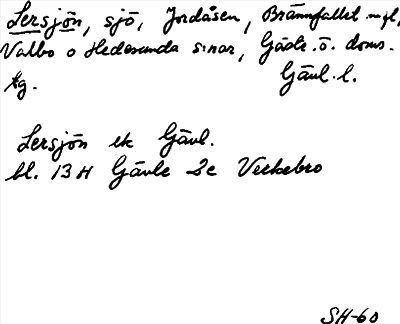 Lersjön, sjö, Jordåsen, Brännfallet m fl,
Valbo o Hedesunda s:nar, Gästr. ö. doms.
tg. Gävl. l.
Lersjön ek Gävl.
bl. 13 H Gävle 2e Verkebro
SH-60